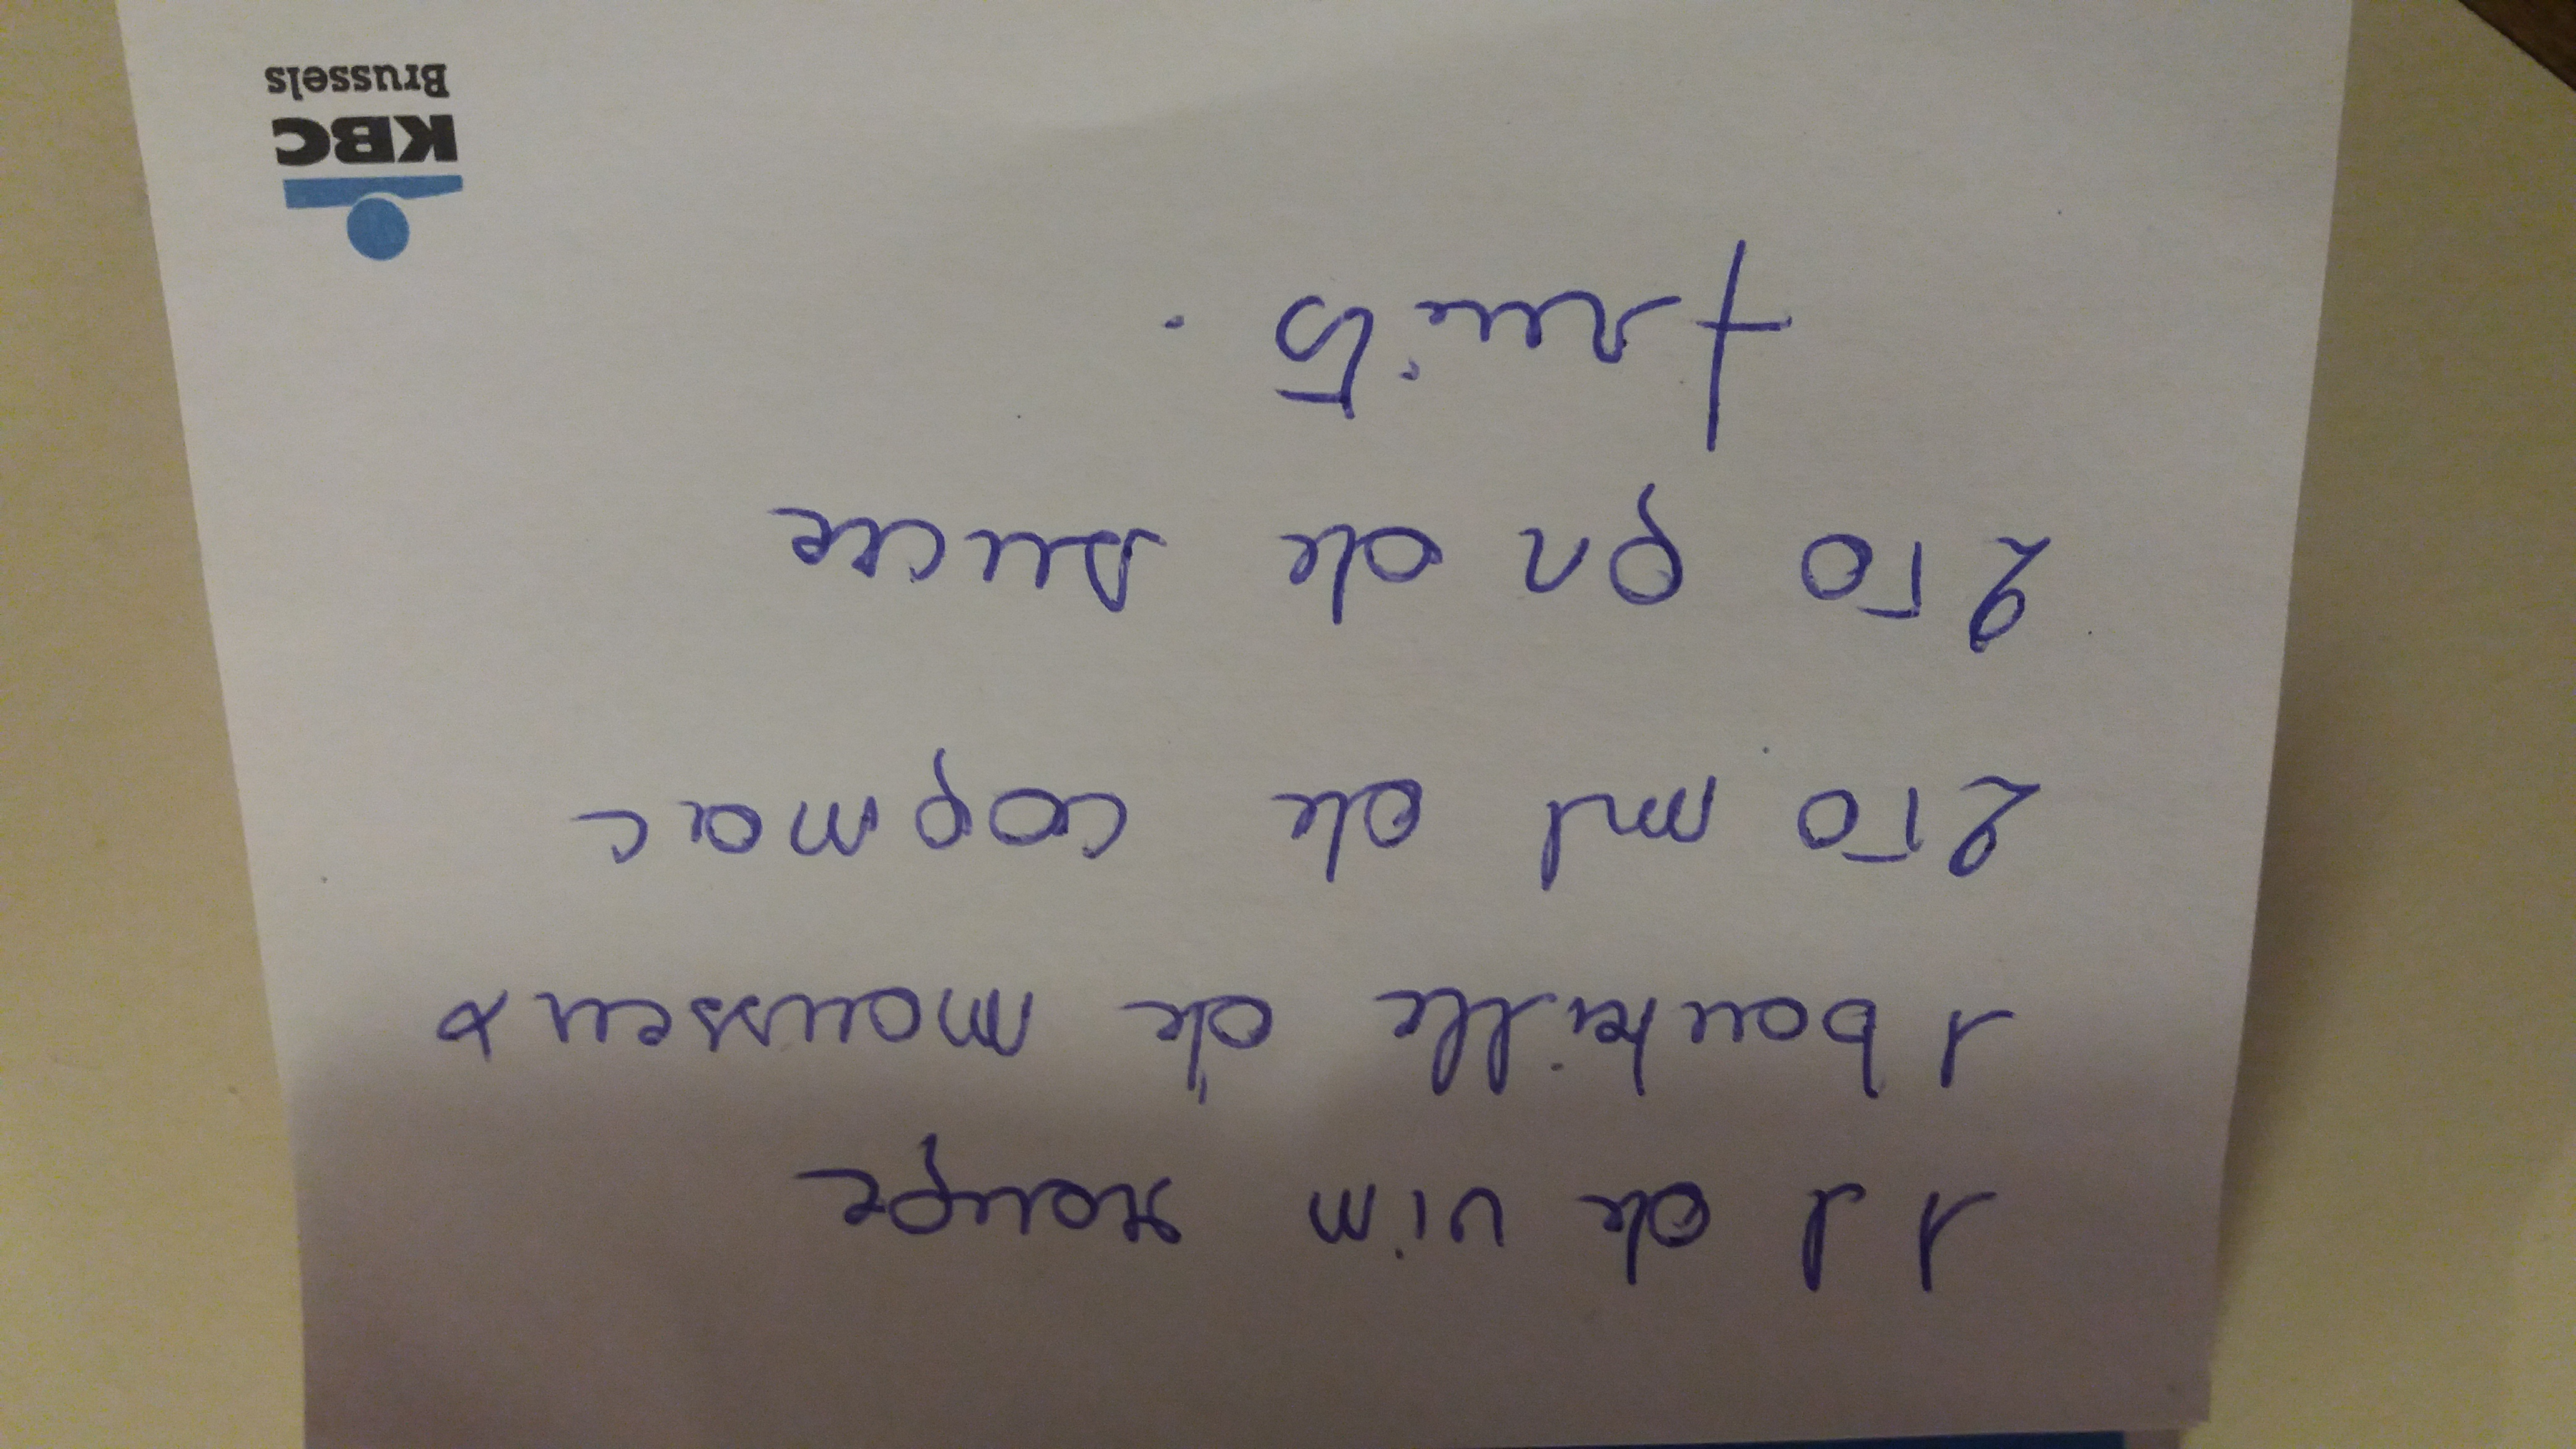 1 l de vin rouge
1 bouteille de mousseux
250 ml de cognac
250 gr de sucre
fruits.
KBC
Brussels